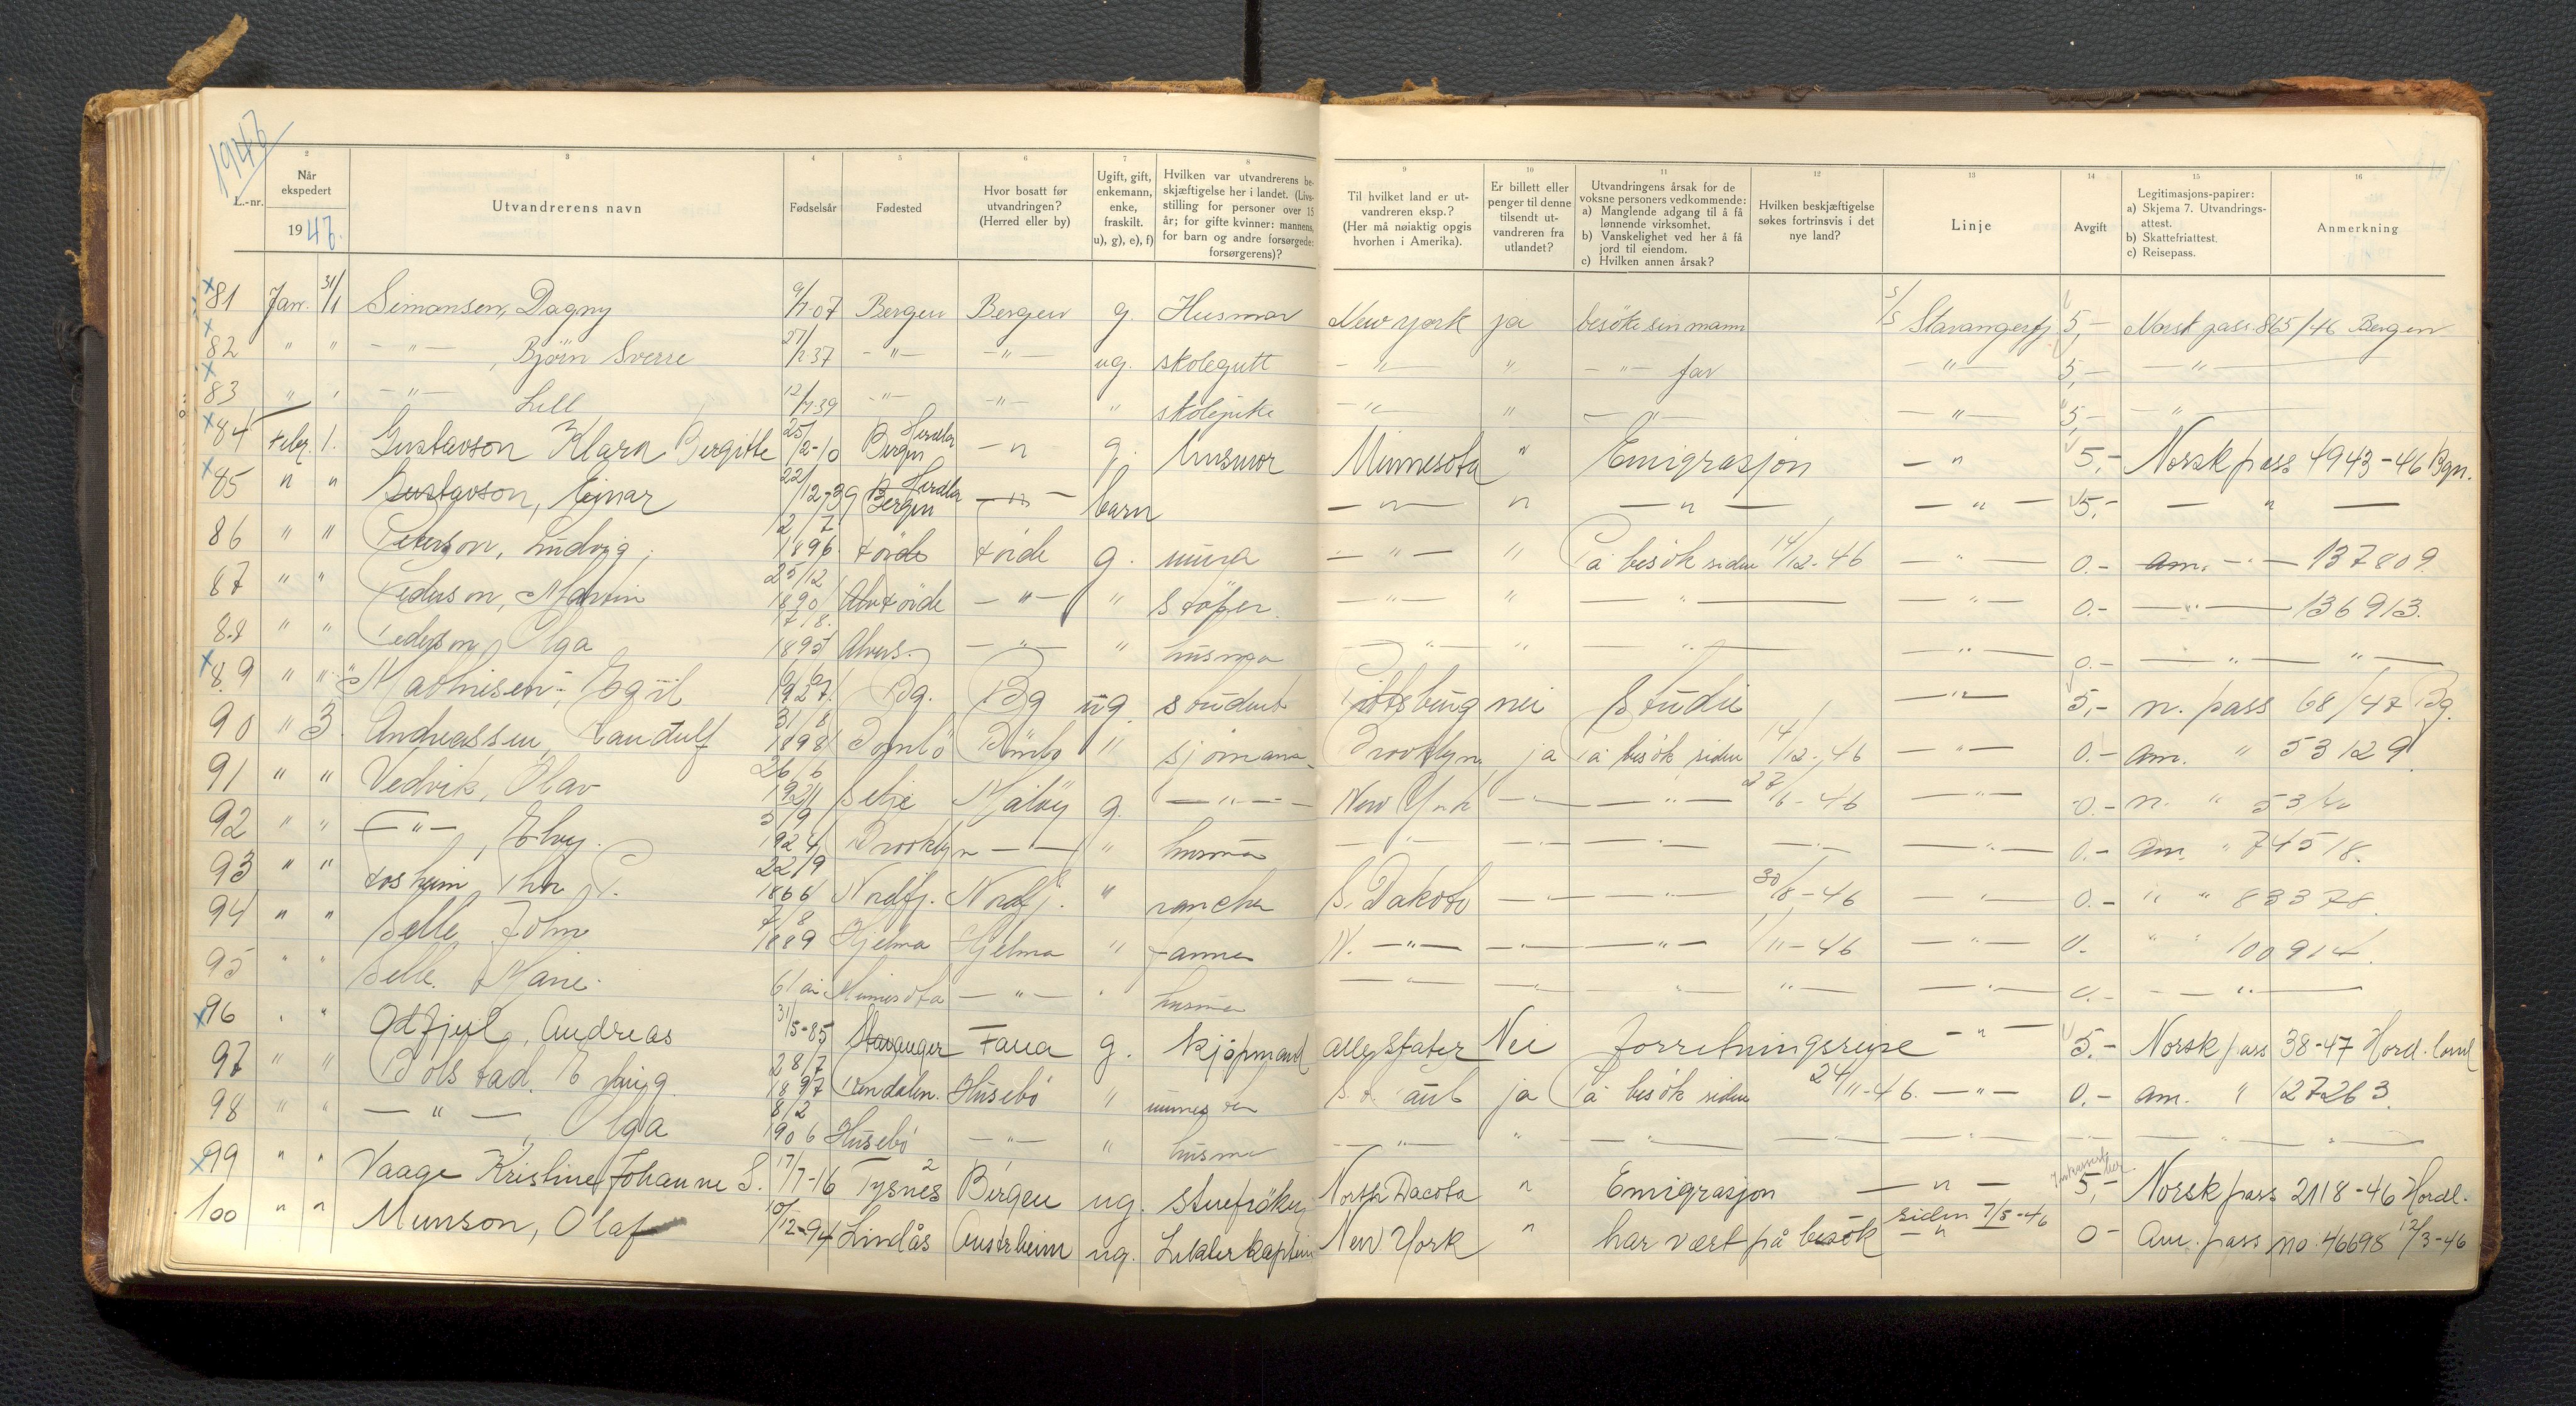 1947
L.-nr.
2 Når ekspedert 1947.
3 Utvandrerens navn
4 Fødselsår
5 Fødested
6 Hvor bosatt før utvandringen? (Herred eller by)
7 Ugift, gift, enkemann, enke, fraskilt. u), g), e), f)
8 Hvilken var utvandrerens beskjæftigelse her i landet. (Livsstilling for personer over 15 år; for gifte kvinner: mannens, for barn og andre forsørgede: forsørgerens)?
9 Til hvilket land er utvandreren eksp.? (Her må nøiaktig opgis hvorhen i Amerika).
10 Er billett eller penger til denne tilsendt utvandreren fra utlandet?
11 Utvandringens årsak for de voksne personers vedkommende: a) Manglende adgang til å få lønnende virksomhet. b) Vanskelighet ved her å få jord til eiendom. c) Hvilken annen årsak?
12 Hvilken beskjæftigelse søkes fortrinsvis i det nye land?
13 Linje
14 Avgift
15 Legitimasjons-papirer: a) Skjema 7. Utvandringsattest. b) Skattefriattest. c) Reisepass.
16 Anmerkning
x 81 Jan. 31/1 Simonsen, Dagny 9/7 07 Bergen Bergen g. Husmor New York ja besöke sin mann S/S Stavangerfj 5,- Norsk pass 865/46 Bergen
x 82 " " - " - , Björn Sverre 37 - " - - " - ug. skolegutt - " - " - " - far - " - 5,- - " -
x 83 " " - " - Lill 12/7 39 - " - - " - " skolepike - " - " - " - - " - 5,- - " -
x 84 Febr. 1. Gustavson Klara Bergitte 25/2-10 Bergen Herdla - " g. husmor Minnesota " Emigrasjon - " 5,- Norsk pass 4943-46 Bgn.
x 85 " " Gustavson, Einar 22/12-39 Bergen Herdla - " - barn - " - " - " - - " - 5,- - " -
86 " " Peterson, Ludvig, 2/7 1896 Förde Förde g. murer - " - " På besök siden 14/12-46 - " - 0.- am. - " - 137809
87 " " Pederson, Martin 25/12 1890 Förde - " - " - " - " - " - - " - 0.- - " - 136913.
88 " " Pederson, Olga 17/8. 1895 Alvers. - " - " husmor - " - " - " - - " - 0.- - " - " -
x 89 " " Mathisen, Egil 6/6 1927. Bg. Bg ug. student Pittsburg nei Studie - " - 5,- n. pass 68/47 Bg.
90 " 3. Andreassen, Randulf 31/8 1898 Bömlo Bömlo " sjömann Brooklyn ja På besök siden 14/12-46 - " - 0.- am. " 53129
91 " " Vedvik, Olav 26/6 1921 Selje Målöy g. - " - New York - " - - " - 22/6-46 - " - 0.- n. "
92 " " - " - , 5/9 1924 Brooklyn - " - " husmor - " - - " - - " - - " - - " - 0.- am. " 74518.
93 " " Thor 22/9 1866 Nordfj. Nordfj. " rancher S. Dakota - " - - " - 30/8-46 - " - 0.- " " 83378.
94 " " Selle John 4/8 1889 Hjelma Hjelma " farmer N. - " - - " - - " - 1/11-46 - " - 0. " " 100914.
95 " " Selle, Marie. 61 år Minnesota - " - " husmor - " - - " - " - " - - " - 0.- - " -
x 96 " " Odfjell, Andreas 31/5-85 Stavanger Fana g. kjöpmand alle stater Nei Forretningsreise - " - 5.- Norsk pass 38-47 Hord.
97 " " Bolstad, 28/7 1897 Husebö " ja På besök siden 24/11-46. - " - 0,- am. " 127263.
98 " " - " - , Olga 8/2 1906 Husebö - " - " husmor - " - " - " - - " - - " - - " -
x 99 " " Vaage Kristine Johanne S. 17/7-16 Tysnes Bergen ug. stuefröken North Dacota " Emigrasjon - " - 5,- Norsk pass 2118-46 Hordl.
100 " " Munson, Olaf 10/12-94 Lindås Austrheim ug. Lekterkaptein New York " har vært på besök siden 7/5-46 - " 0- Am. pass no. 46698 12/3-46